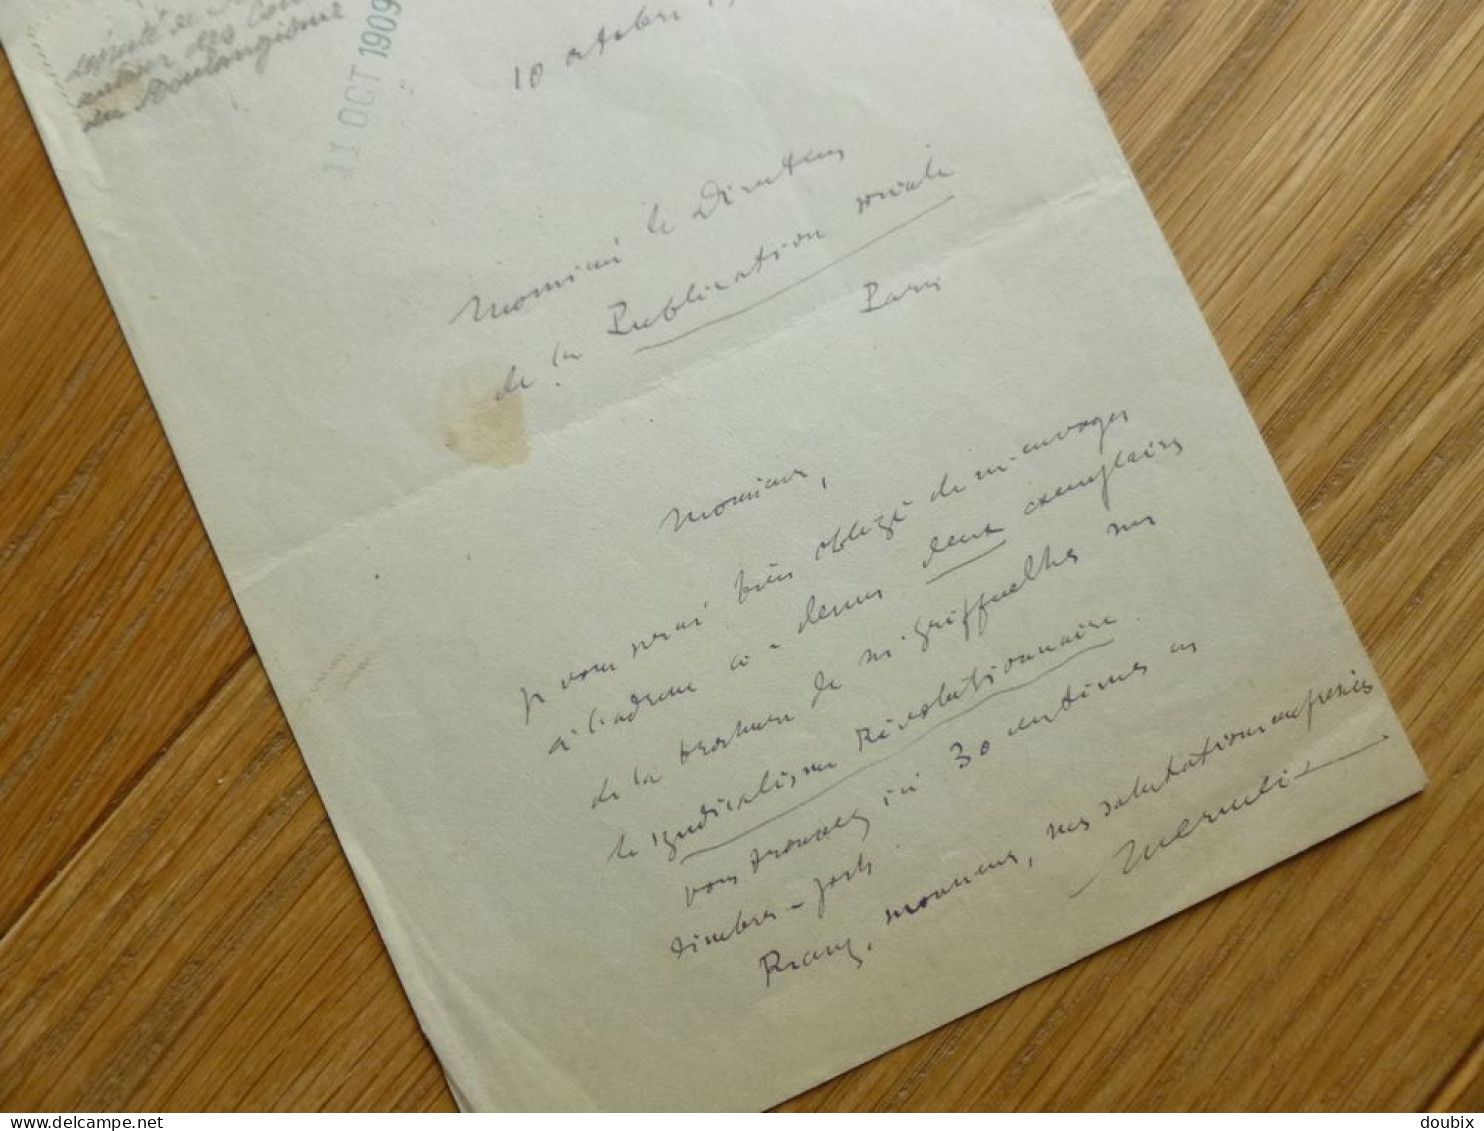 député de
auteur des Cou
du Boulangisme
11 OCT 1909
10 octobre 19
Monsieur le Directeur
de la Publication sociale
Paris
Monsieur,
je vous serai bien obligé de m'envoyer
à l'adresse ci-dessus deux exemplaires
de la brochure de M. Griffuelhes sur
le syndicalisme Révolutionnaire.
vous trouverez ici 30 centimes en
timbres-poste.
Recevez, monsieur, mes salutations empressées
Mermeix
doubix